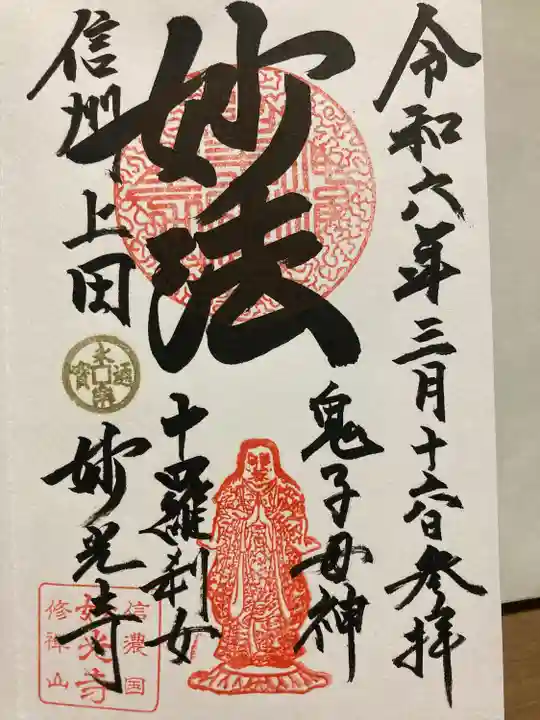 令和六年三月十六日参拝
妙法
鬼子母神
十羅刹女
信州上田
妙光寺
信濃国
妙光寺
修禅山